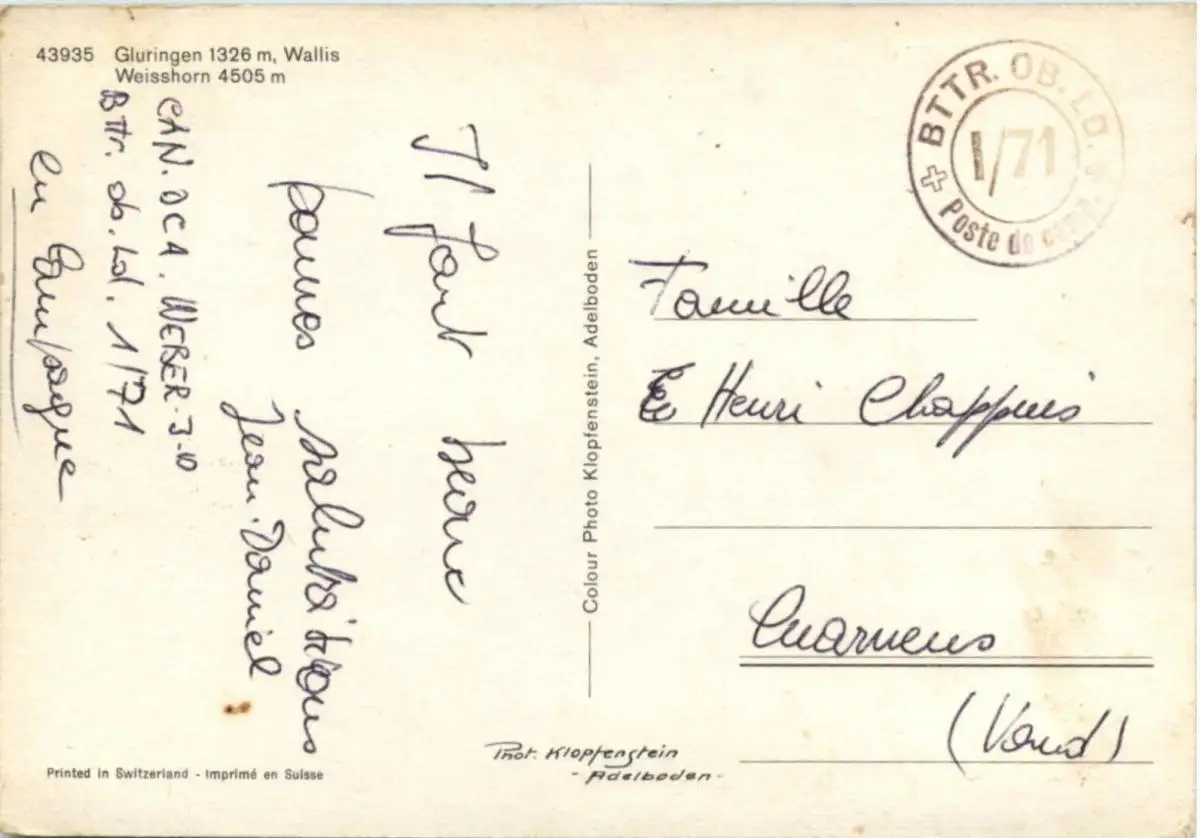 43935 Gluringen 1326 m, Wallis
Weisshorn 4505 m
Il fait beau
bonnes salutations
Jean-Daniel
CAN. DCA. WEBER. J-D
Bttr. ob. Ld. 1/71
en Campagne
Printed in Switzerland - Imprimé en Suisse
Phot. Klopfenstein
- Adelboden -
Colour Photo Klopfenstein, Adelboden
BTTR. OB. LD.
I/71
Poste de camp.
Famille
Henri Chappuis
Cuarnens
(Vaud)